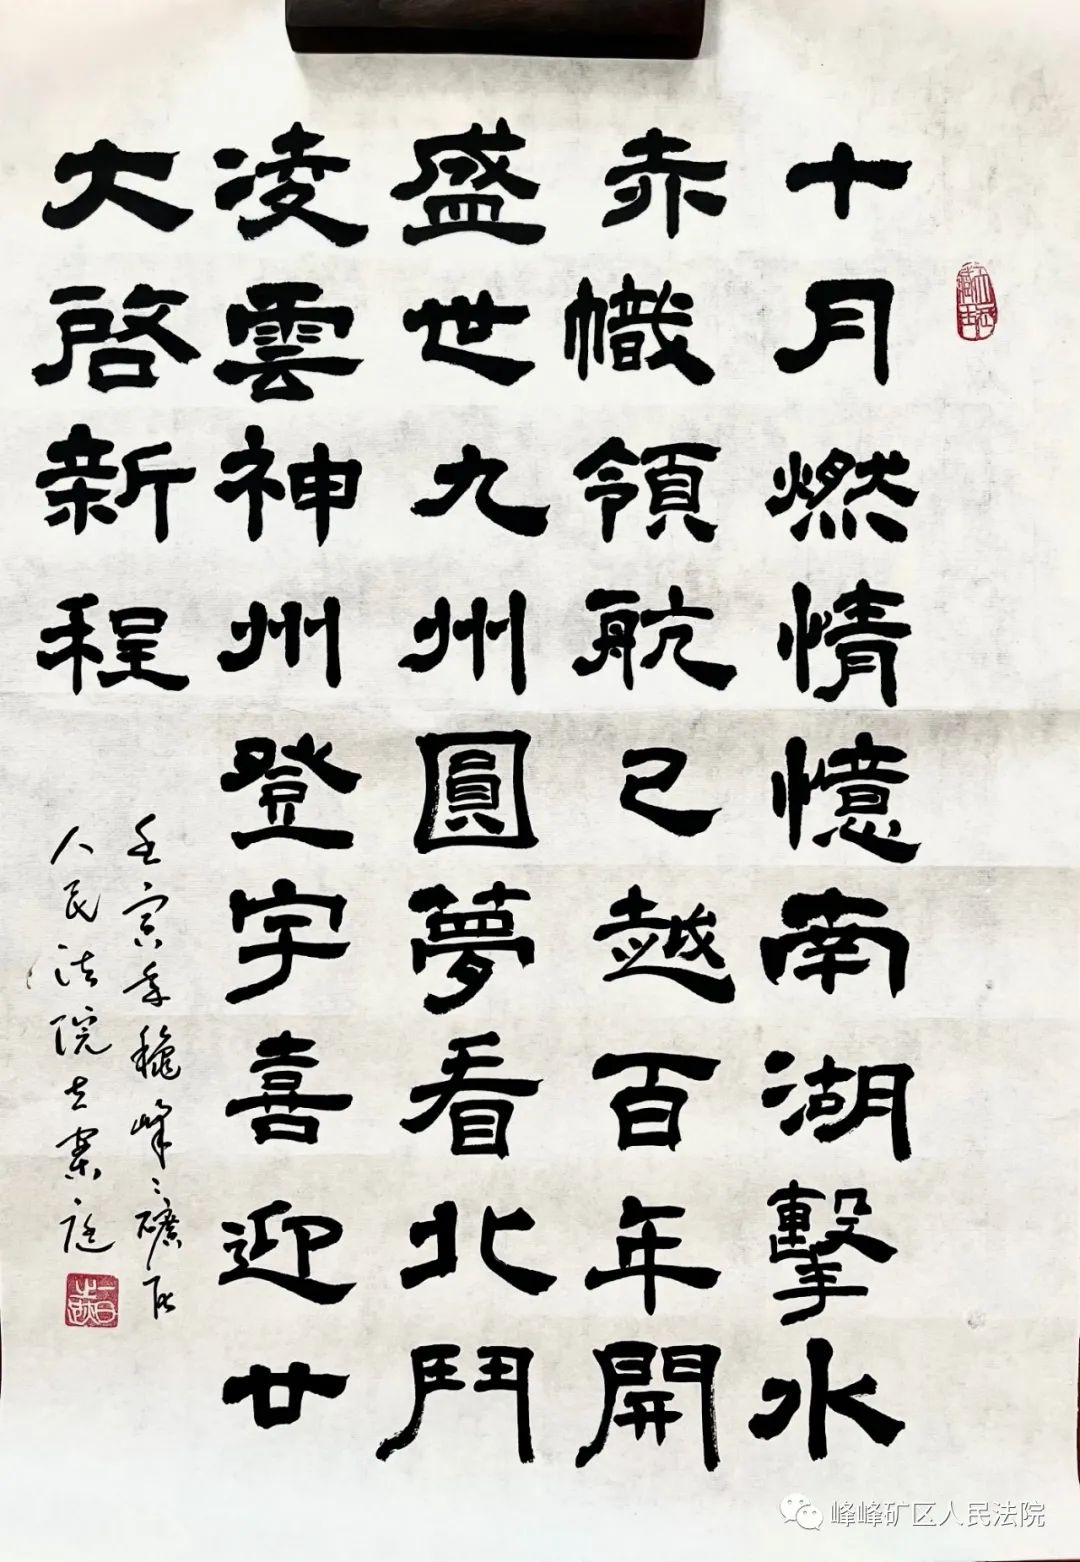 十月燃情憶南湖擊水
赤幟領航已越百年開
盛世九州圓夢看北鬥
凌雲神州登宇喜迎廿
大啓新程
壬寅季穐峰〻礦区
人民法院立案庭
峰峰矿区人民法院